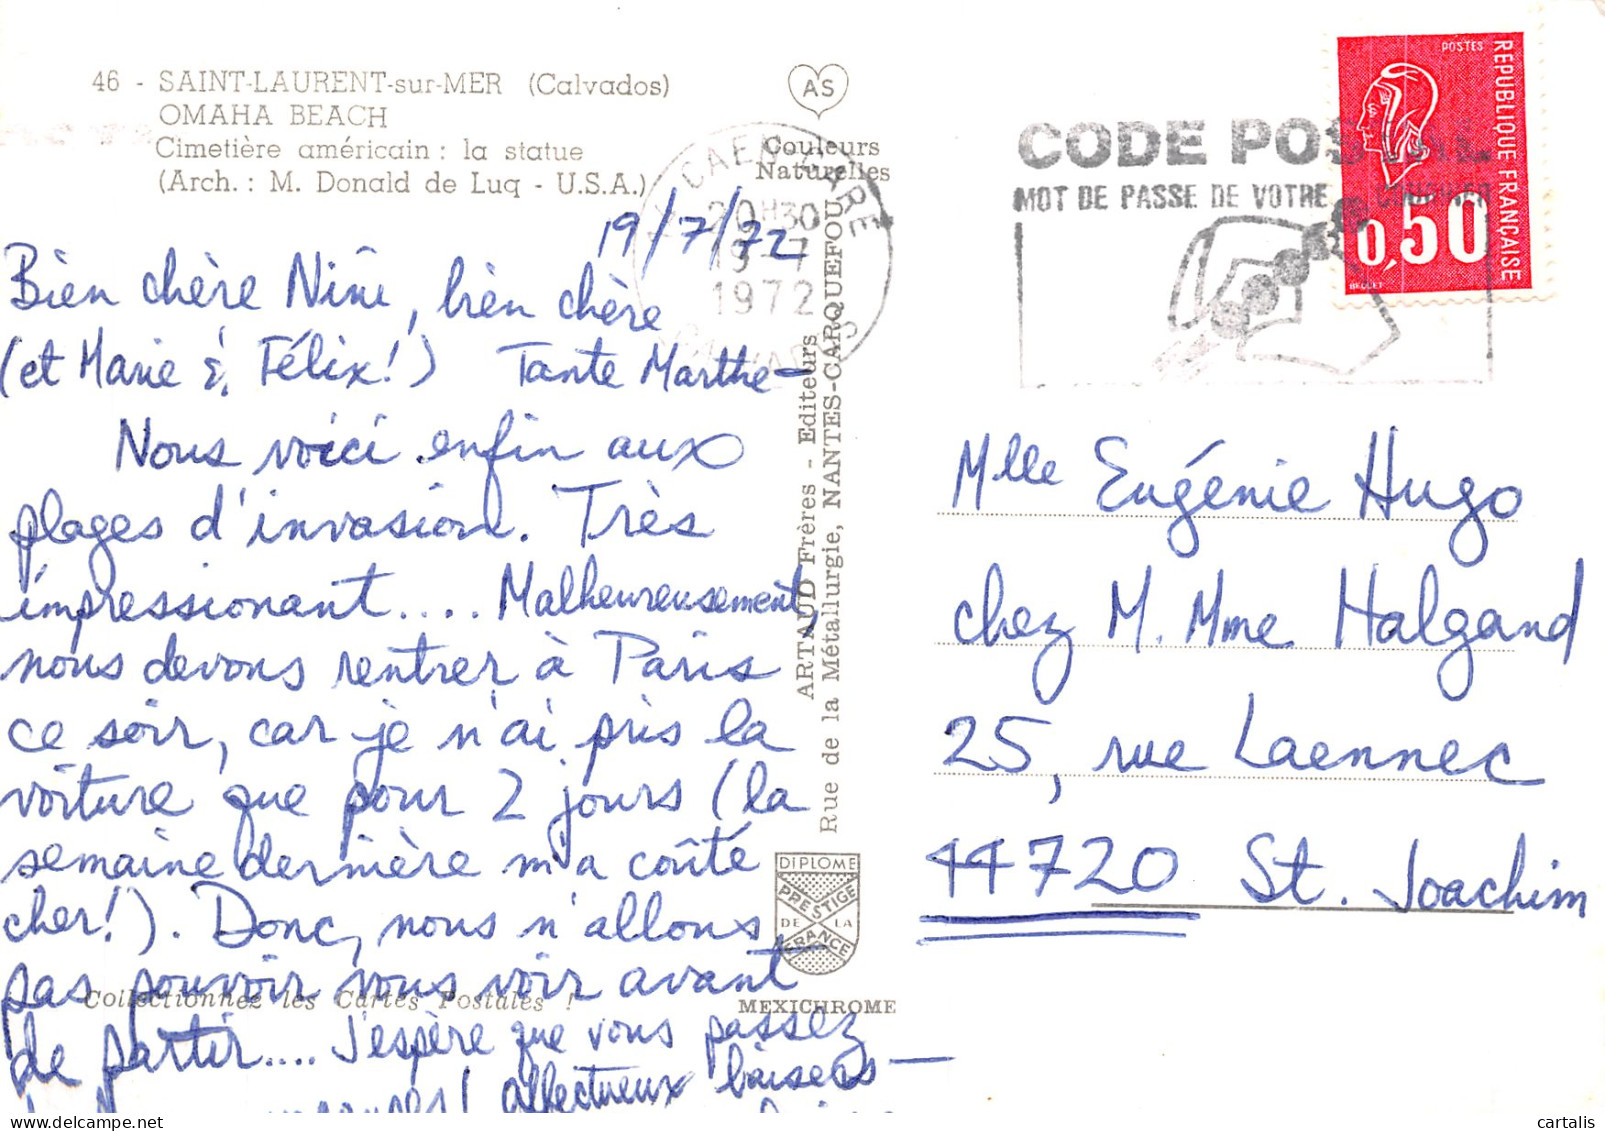 46 - SAINT-LAURENT-sur-MER (Calvados)
OMAHA BEACH
Cimetière américain : la statue
(Arch. : M. Donald de Luq - U.S.A.)
AS
Couleurs
Naturelles
CAEN GARE
20H30
19-7
1972
CALVADOS
CODE POSTAL
MOT DE PASSE DE VOTRE COURRIER
POSTES
REPUBLIQUE FRANÇAISE
0,50
BEQUET
19/7/72
Bien chère Nini, bien chère
(et Marie & Félix!) Tante Marthe—
Nous voici enfin aux
plages d'invasion. Très
impressionant.... Malheureusement,
nous devons rentrer à Paris
ce soir, car je n'ai pris la
voiture que pour 2 jours (la
semaine dernière m'a coûté
cher!). Donc, nous n'allons
pas pouvoir vous voir avant
de partir.... J'espère que vous passez
affectueux baisers —
ARTAUD Frères - Editeurs
Rue de la Métallurgie, NANTES-CARQUEFOU
DIPLOME
PRESTIGE
DE LA
FRANCE
Collectionnez les Cartes Postales !
MEXICHROME
Mlle Eugénie Hugo
chez M. Mme Halgand
25, rue Laennec
44720 St. Joachim
cartalis